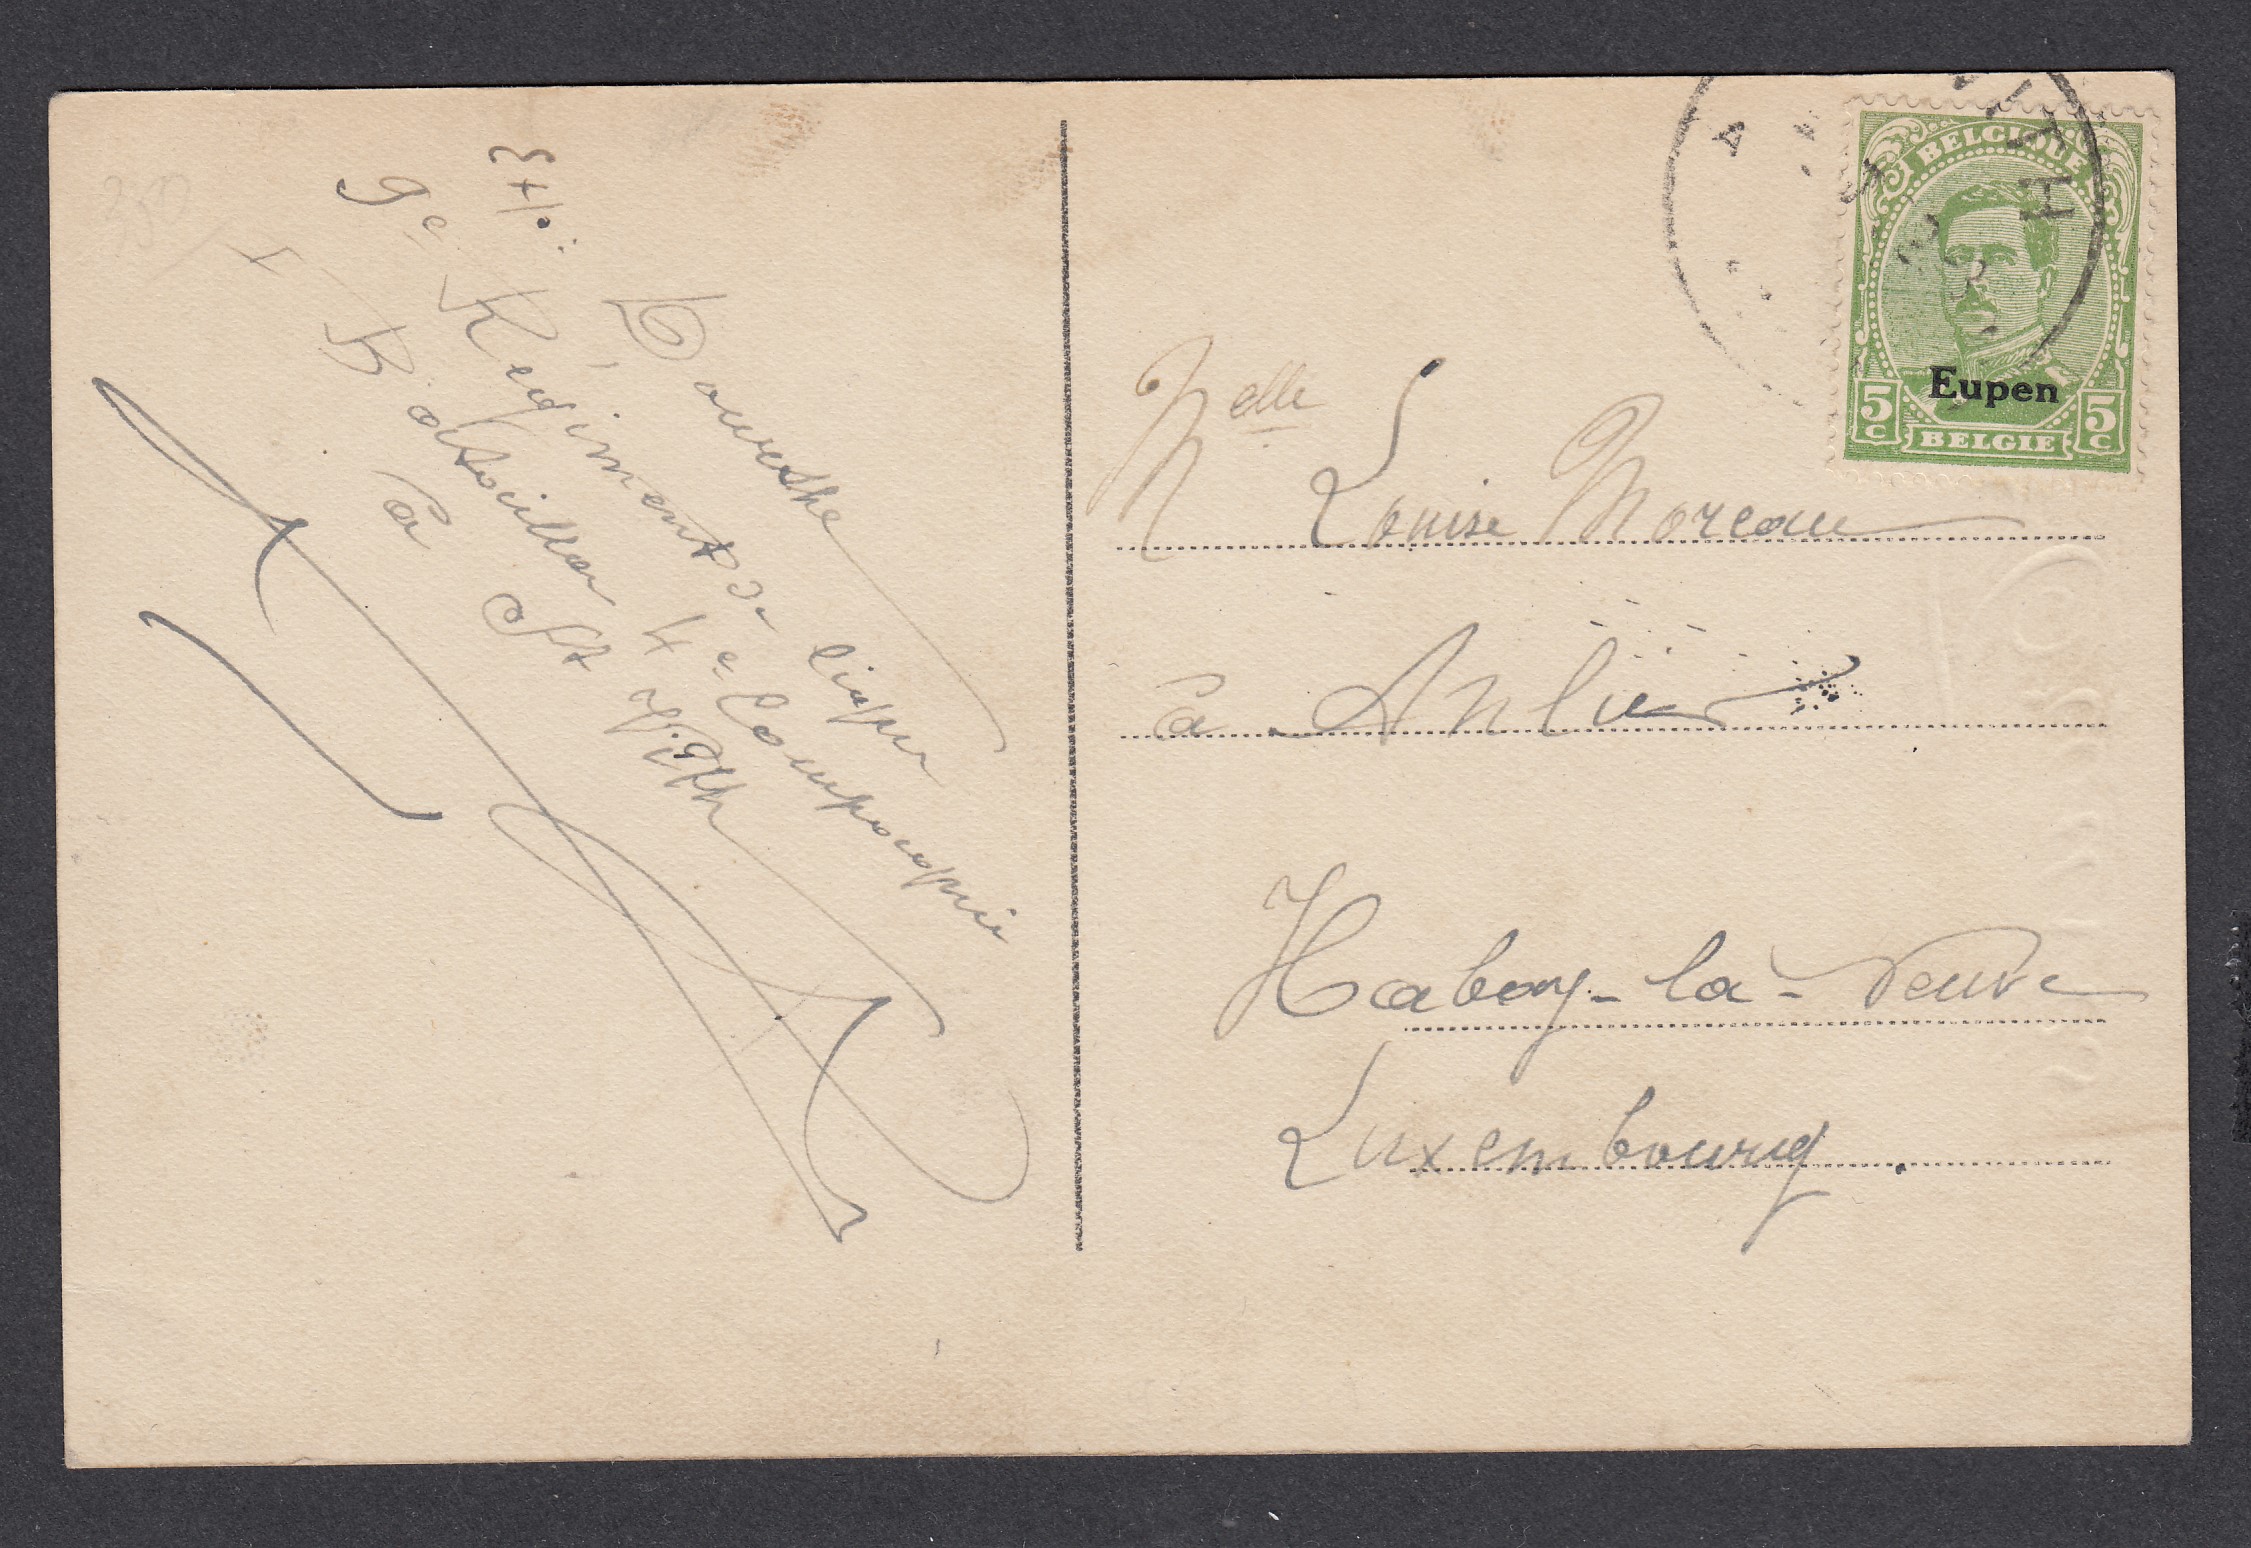 Exp:
9e Régiment de ligne
I Bataillon 4e Compagnie
à St Vith
Melle Louise Moreau
à Anlier
Habay-la-Neuve
Luxembourg.
BELGIQUE
Eupen
5 c BELGIE 5 c